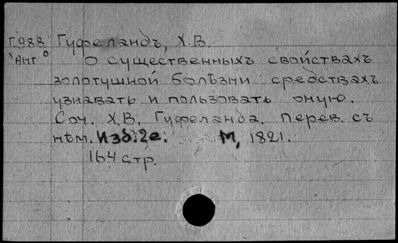 Г.988 Гуфеландъ, Х.В.
"Анг" О существенныхъ свойствахъ
золотушной болѣзни средствахъ
узнавать и пользовать оную.
Соч. Х.В. Гуфеланда. Перев. съ
нѣм. Изд. 2е. М, 1821.
164 стр.